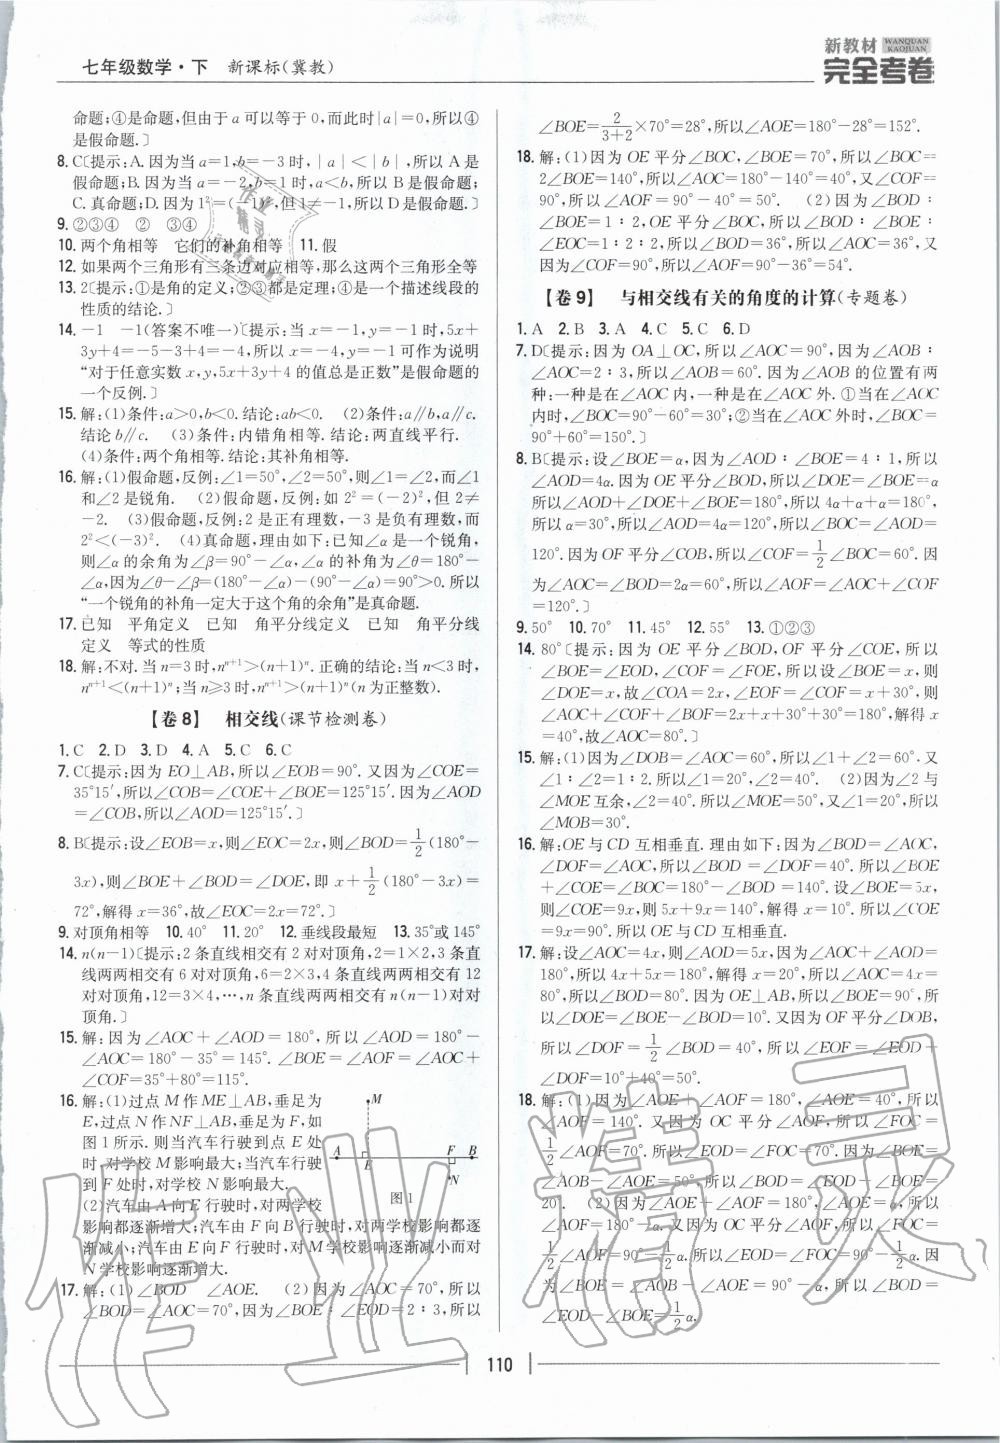 七年级数学·下 新课标(冀教)
新教材 WANQUAN KAOJUAN
完全考卷
命题;④是命题,但由于a可以等于0,而此时|a|=0,所以④
是假命题.〕
8. C〔提示:A.因为当a=1,b=-3时,|a|<|b|,所以A是
假命题;B.因为当a=-2,b=1时,a<b,所以B是假命题;
C.真命题;D.因为1²=(-1)²,但1≠-1,所以D是假命题.〕
9. ②③④ ② ③④
10. 两个角相等 它们的补角相等 11. 假
12. 如果两个三角形有三条边对应相等,那么这两个三角形全等
13. 2〔提示:①是角的定义;②③都是定理;④是一个描述线段的
性质的结论.〕
14. -1 -1(答案不唯一)〔提示:当x=-1,y=-1时,5x+
3y+4=-5-3+4=-4,所以x=-1,y=-1可作为说明
“对于任意实数x,y,5x+3y+4的值总是正数”是假命题的
一个反例.〕
15. 解:(1)条件:a>0,b<0.结论:ab<0. (2)条件:a∥b,a∥c.
结论b∥c. (3)条件:内错角相等.结论:两直线平行.
(4)条件:两个角相等.结论:其补角相等.
16. 解:(1)假命题,反例:∠1=50°,∠2=50°,则∠1=∠2,而∠1
和∠2是锐角. (2)假命题,反例:如2²=(-2)²,但2≠
-2. (3)假命题,反例:2是正有理数,-3是负有理数,而
2²<(-3)². (4)真命题,理由如下:已知∠α是一个锐角,
则∠α的余角为∠β=90°-∠α,∠α的补角为∠θ=180°-
∠α,因为∠θ-∠β=(180°-∠α)-(90°-∠α)=90°>0.所以
“一个锐角的补角一定大于这个角的余角”是真命题.
17. 已知 平角定义 已知 角平分线定义 已知 角平分线
定义 等式的性质
18. 解:不对.当n=3时,nⁿ⁺¹>(n+1)ⁿ.正确的结论:当n<3时,
nⁿ⁺¹<(n+1)ⁿ;当n≥3时,nⁿ⁺¹>(n+1)ⁿ(n为正整数).
【卷8】 相交线(课节检测卷)
1. C 2. D 3. D 4. A 5. C 6. C
7. C〔提示:因为EO⊥AB,所以∠EOB=90°.又因为∠COE=
35°15′,所以∠COB=∠COE+∠BOE=125°15′.因为∠AOD
=∠COB,所以∠AOD=125°15′.〕
8. B〔提示:设∠EOB=x,则∠EOC=2x,则∠BOD=1/2(180°-
3x),则∠BOE+∠BOD=∠DOE,即x+1/2(180°-3x)=
72°,解得x=36°,故∠EOC=2x=72°.〕
9. 对顶角相等 10. 40° 11. 20° 12. 垂线段最短 13. 35°或145°
14. n(n-1)〔提示:2条直线相交有2对对顶角,2=1×2,3条直
线两两相交有6对对顶角,6=2×3,4条直线两两相交有12
对对顶角,12=3×4,…,n条直线两两相交有n(n-1)对对
顶角.〕
15. 解:因为∠AOC+∠AOD=180°,所以∠AOD=180°-
∠AOC=180°-35°=145°.∠BOE=∠AOF=∠AOC+
∠COF=35°+80°=115°.
16. 解:(1)过点M作ME⊥AB,垂足为
E,过点N作NF⊥AB,垂足为F,如
图1所示.则当汽车行驶到点E处
时,对学校M影响最大;当汽车行驶
到F处时,对学校N影响最大.
M
A E F B
N
图1
(2)汽车由A向E行驶时,对两学校
影响都逐渐增大;汽车由F向B行驶时,对两学校影响都逐
渐减小;汽车由E向F行驶时,对M学校影响逐渐减小而对
N学校影响逐渐增大.
17. 解:(1)∠BOD ∠AOE. (2)因为∠AOC=70°,所以
∠BOD=∠AOC=70°,因为∠BOE∶∠EOD=2∶3,所以
∠BOE=2/(3+2)×70°=28°,所以∠AOE=180°-28°=152°.
18. 解:(1)因为OE平分∠BOC,∠BOE=70°,所以∠BOC=
2∠BOE=140°,所以∠AOC=180°-140°=40°,又∠COF=
90°,所以∠AOF=90°-40°=50°. (2)因为∠BOD∶
∠BOE=1∶2,OE平分∠BOC,所以∠BOD∶∠BOE∶
∠EOC=1∶2∶2,所以∠BOD=36°,所以∠AOC=36°,又
因为∠COF=90°,所以∠AOF=90°-36°=54°.
【卷9】 与相交线有关的角度的计算(专题卷)
1. A 2. B 3. A 4. C 5. C 6. D
7. D〔提示:因为OA⊥OC,所以∠AOC=90°,因为∠AOB∶
∠AOC=2∶3,所以∠AOB=60°.因为∠AOB的位置有两
种:一种是在∠AOC内,一种是在∠AOC外.①当在∠AOC
内时,∠BOC=90°-60°=30°;②当在∠AOC外时,∠BOC=
90°+60°=150°.〕
8. B〔提示:设∠BOE=α,因为∠AOD∶∠BOE=4∶1,所以
∠AOD=4α.因为OE平分∠BOD,所以∠DOE=∠BOE=α
所以∠AOD+∠DOE+∠BOE=180°,所以4α+α+α=180°,
所以α=30°,所以∠AOD=4α=120°,所以∠BOC=∠AOD=
120°.因为OF平分∠COB,所以∠COF=1/2∠BOC=60°.因
为∠AOC=∠BOD=2α=60°,所以∠AOF=∠AOC+∠COF
=120°.〕
9. 50° 10. 70° 11. 45° 12. 55° 13. ①②③
14. 80°〔提示:因为OE平分∠BOD,OF平分∠COE,所以
∠BOE=∠EOD,∠COF=∠FOE,所以设∠BOE=x,则
∠DOE=x,故∠COA=2x,∠EOF=∠COF=x+30°,则
∠AOC+∠COF+∠BOF=2x+x+30°+30°=180°,解得x
=40°,故∠AOC=80°.〕
15. 解:(1)因为∠DOB=∠AOC=60°,所以∠1+∠2=60°.又
∠1∶∠2=1∶2,所以∠1=20°,∠2=40°. (2)因为∠2与
∠MOE互余,∠2=40°.所以∠MOE=50°,又∠1=20°,所以
∠MOB=30°.
16. 解:OE与CD互相垂直.理由如下:因为∠BOD=∠AOC,
∠DOF=∠AOC,所以∠BOD=∠DOF=40°.所以∠BOE
+∠COE=∠BOC=180°-∠BOD=140°.设∠BOE=5x,
则∠COE=9x,则5x+9x=140°,解得x=10°.所以∠COE
=9x=90°.所以OE与CD互相垂直.
17. 解:设∠AOC=4x,则∠AOD=5x,因为∠AOC+∠AOD=
180°,所以4x+5x=180°,解得x=20°,所以∠AOC=4x=
80°,所以∠BOD=80°.因为OE⊥AB,所以∠BOE=90°,所
以∠DOE=∠BOE-∠BOD=10°.又因为OF平分∠DOB,
所以∠DOF=1/2∠BOD=40°,所以∠EOF=∠EOD+
∠DOF=10°+40°=50°.
18. 解:(1)因为∠AOE+∠AOF=180°,∠AOE=40°,所以
∠AOF=140°.又因为OC平分∠AOF,所以∠FOC=
1/2∠AOF=70°.所以∠EOD=∠FOC=70°.因为∠BOE=
∠AOB-∠AOE=50°,所以∠BOD=∠EOD-∠BOE=
20°. (2)因为∠AOE+∠AOF=180°,∠AOE=α,所以
∠AOF=180°-α.又因为OC平分∠AOF,所以∠FOC=
1/2∠AOF=90°-1/2α.所以∠EOD=∠FOC=90°-1/2α.因
为∠BOE=∠AOB-∠AOE=90°-α,所以∠BOD=
∠EOD-∠BOE=1/2α.
110
作业精灵